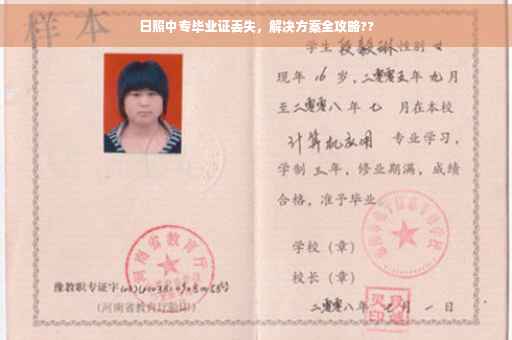 日照中专毕业证丢失，解决方案全攻略??
样本
学生段毅琳性别女
现年16岁，二零零五年九月
至二零零八年七月在本校
计算机应用 专业学习，
学制三年，修业期满，成绩
合格，准予毕业。
学校（章）
校长（章）
二零零八年七月一日
河南省教育厅
豫教职专证字
(河南省教育厅验印)